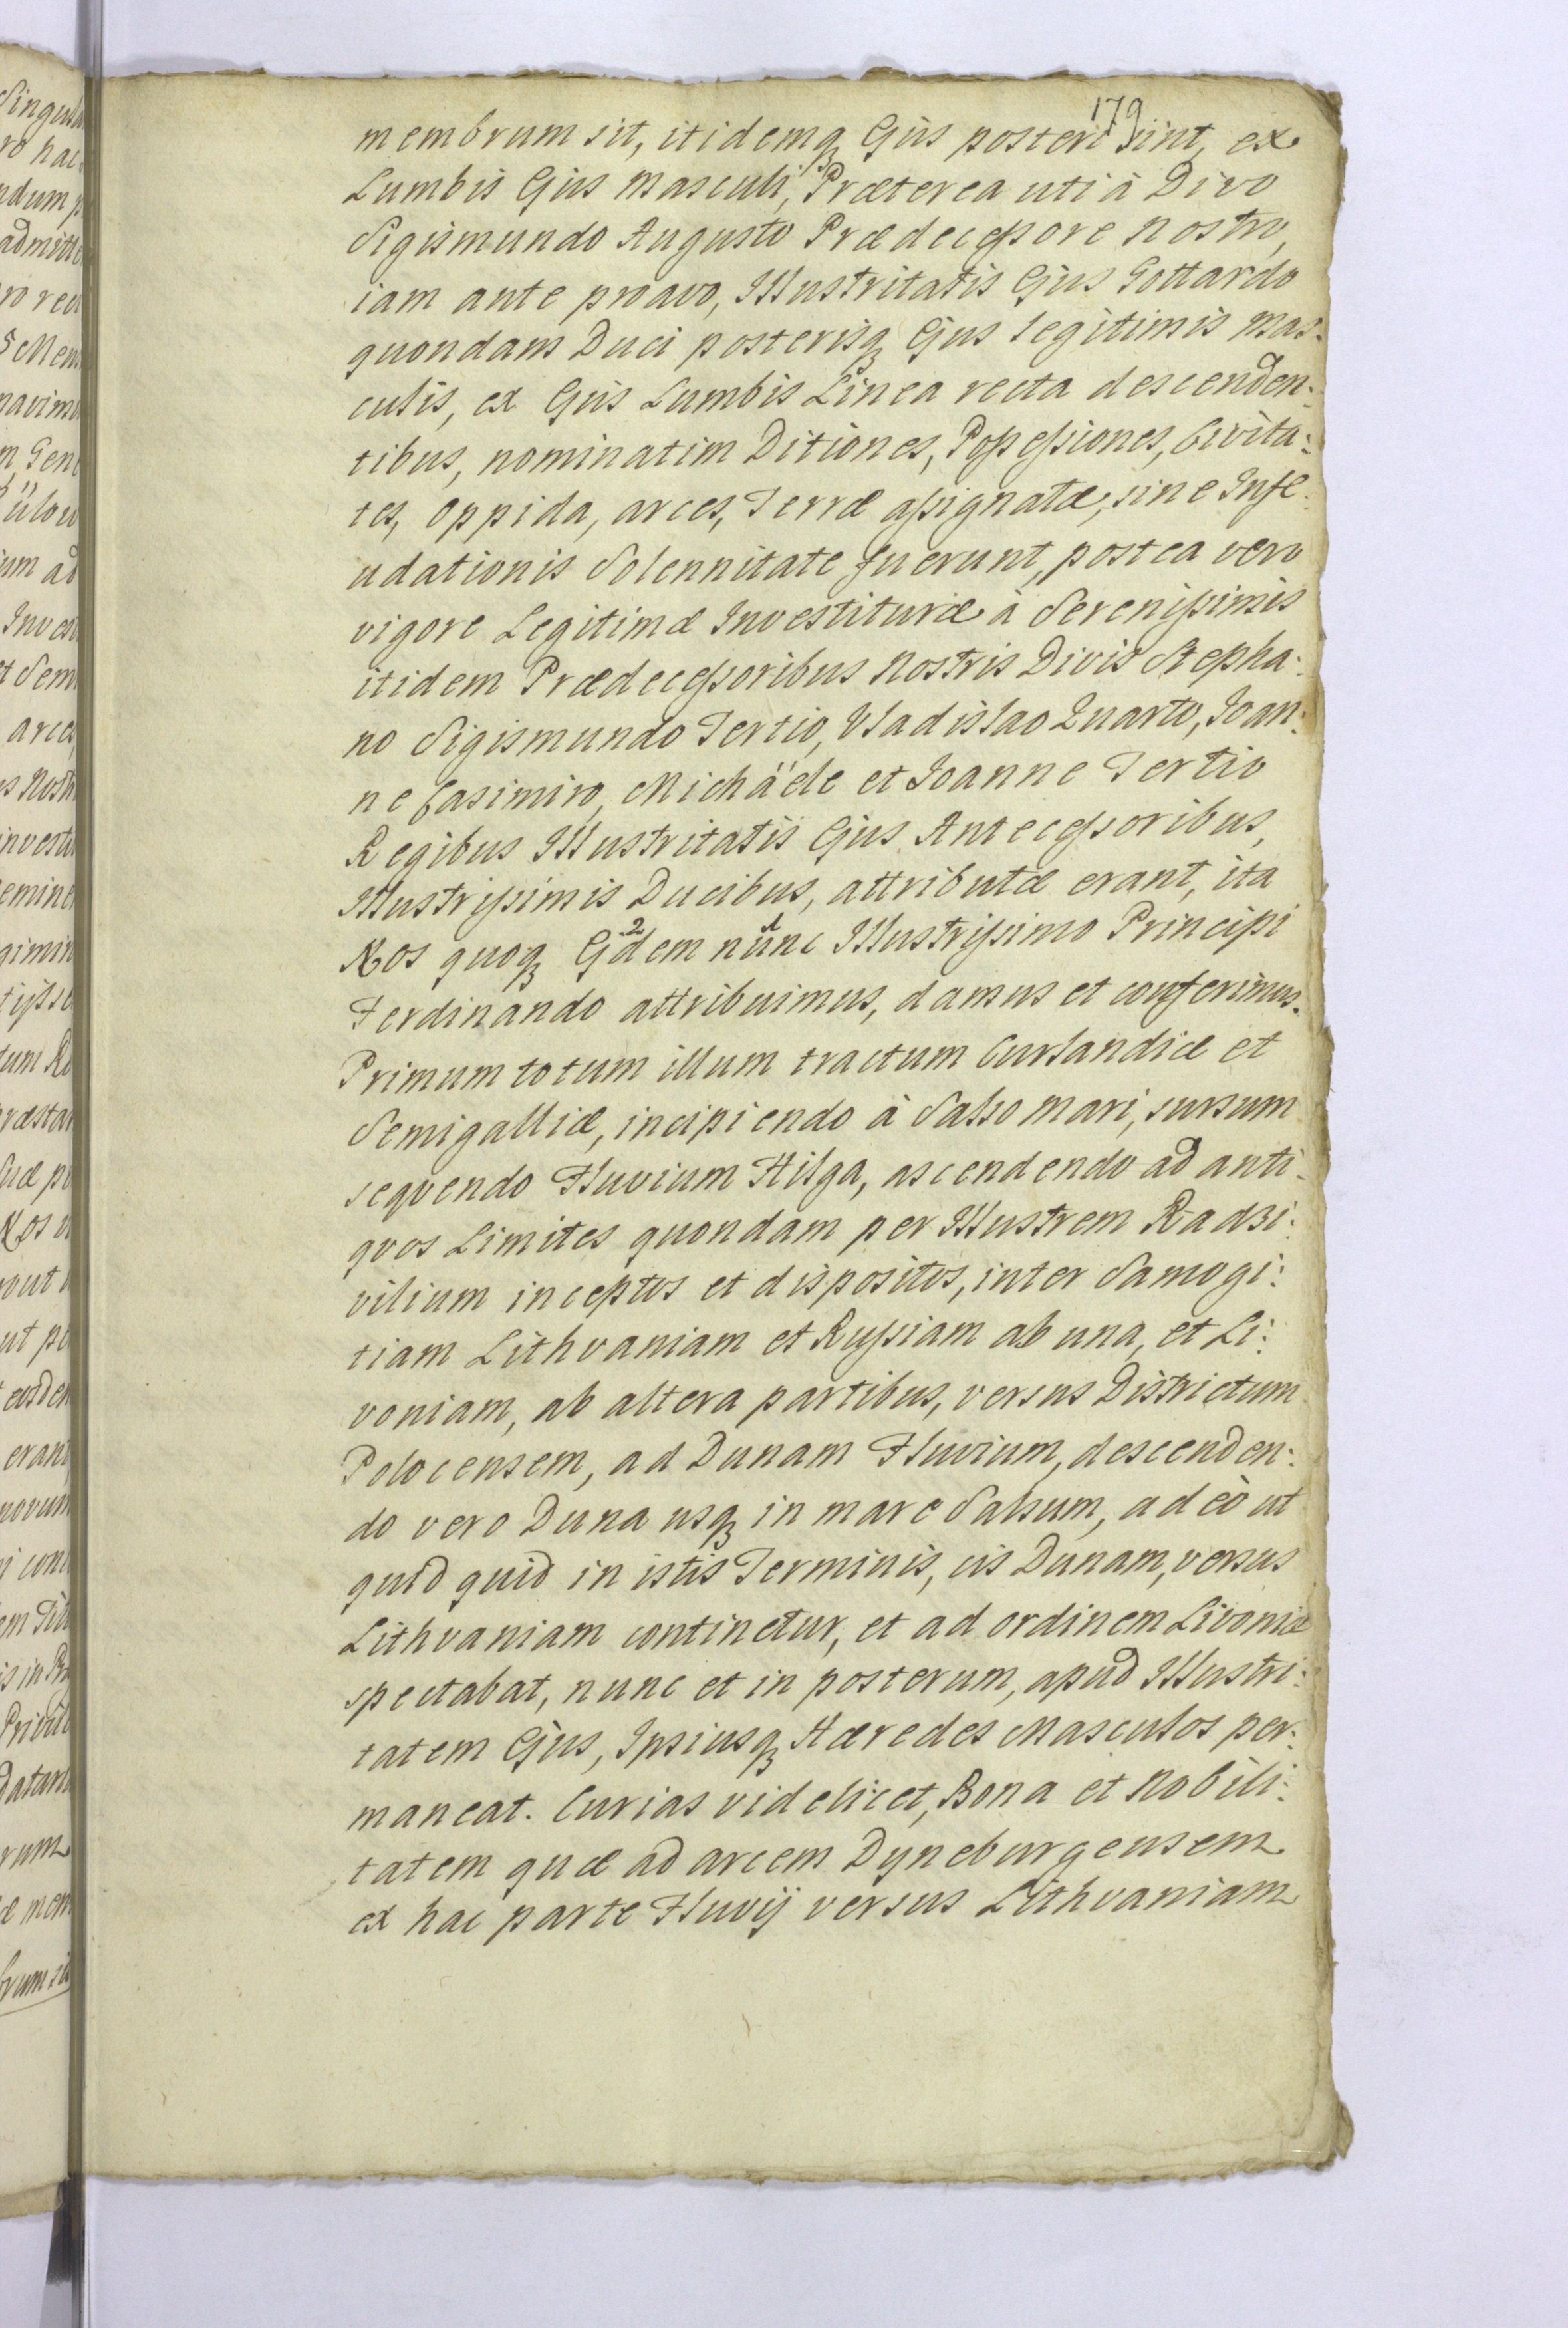 179
membrum sit, itidemq; Ejus posteri sint, ex
Lumbis Ejus Masculi, Præterea uti à Divo
Sigismundo Augusto Prædecessore Nostro,
iam ante proavo, Illustritatis Ejus Gottardo
quondam Duci posterisq; Ejus legitimis Mas:
culis, ex Ejus Lumbis Linea recta descenden:
tibus, nominatim Ditiones, Possessiones, Civita:
tes, Oppida, arces, Terræ assignatæ, sine Infe:
udationis Solennitate fuerunt, postea vero
vigore Legitimæ Investituræ à Serenissimis
itidem Prædecessoribus Nostris Divis Stepha:
no Sigismundo Tertio, Vladislao Quarto, Joan:
ne Casimiro, Michäele et Joanne Tertio
Regibus Illustritatis Ejus Antecessoribus,
Illustrissimis Ducibus, attributæ erant, ita
Nos quoq; Ejdem 2 nunc 1 Illustrissimo Principi
Ferdinando attribuimus, damus et conferimus.
Primum totum illum tractum Curlandiæ et
Semigalliæ, incipiendo à Salso mari, sursum
seqvendo Fluvium Hilga, ascendendo ad anti:
qvos Limites quondam per Illustrem Radzi:
vilium inceptos et dispositos, inter Samogi:
tiam Lithvaniam et Russiam ab una, et Li:
voniam, ab altera partibus, versus Districtum
Polocensem, ad Dunam Fluvium, descenden:
do vero Duna usq; in mare Salsum, adeò ut
quid quid in istis Terminis, cis Dunam, versus
Lithvaniam continetur, et ad ordinem Livoniæ
spectabat, nunc et in posterum, apud Illustri:
tatem Ejus, Ipsiusq; Hæredes Masculos per:
maneat. Curias videlicet, Bona et Nobili:
tatem quæ ad arcem Dyneburgensem
ex hac parte Fluvij versus Lithvaniam